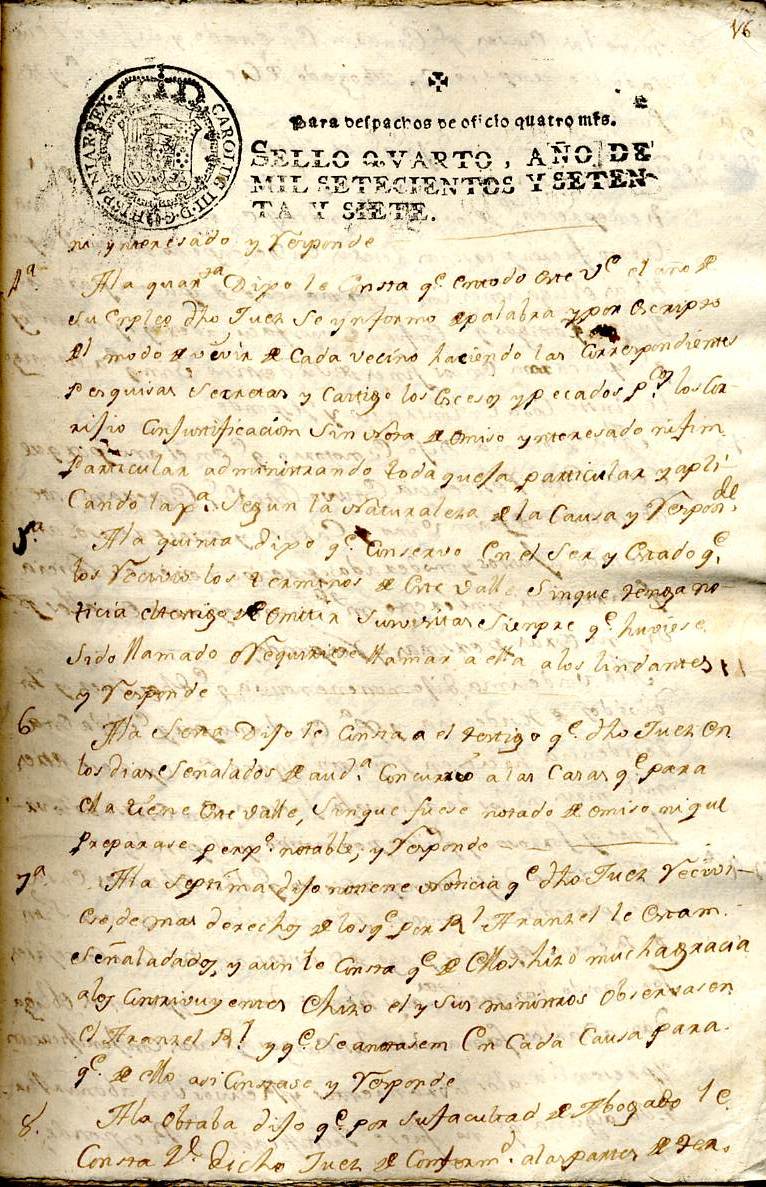 16
Para despachos de oficio quatro mrs.
CAROLUS III. D. G. HISPANIAR. REX
SELLO QVARTO, AÑO DE
MIL SETECIENTOS Y SETEN-
TA Y SIETE.
ni ynteresado y Responde
4ª. Ala quarta Dijo le Consta qe. en todo este Ve. el año de
su enpleo dho Juez se ynformo de palabra y por escripto
del modo de vivir de Cada vecino haciendo las Correspondientes
pesquisas Secretas y Castigo los excesos y pecados pcos. los Cor-
rijio Con justificacion Sin Nota de Omiso ynteresado ni fin
Particular administrando toda queja particular y apli-
cando la pa. segun la Naturaleza de la Causa y Respde.
5ª. Ala quinta dijo qe. Conservo En el Ser y Estado qe.
los Recivio los terminos de Este Valle Sin que tenga no-
ticia el testigo de Omitir Su visitas Sienpre qe. huviese
sido llamado o Requiriese llamar a ella a los lindantes
y Responde
6ª. Ala Sexta Dijo le Consta a el testigo qe. dho Juez En
los dias Señalados de auda. Concurrio a las Casas qe. para
Ella tiene Este Valle, Sin que fuese notado de omiso ni que
preparase notable, y Responde
7ª. Ala Septima dijo no tiene Noticia qe. dho Juez Recivi-
ese, de mas derechos de los qe. por Rl. Aranzel le Estan
Señaladados, y aun le Consta qe. de Ellos hizo mucha gracia
alos Contrivuyentes E hizo el y sus ministros Observasen
El Aranzel Rl. y qe. Se anotasen En Cada Causa para
qe. de Ello asi Constase y Responde
8. Ala Obtaba dijo qe. por su facultad de Abogado le
Consta qe. dicho Juez de Conformd. alas partes de ter-